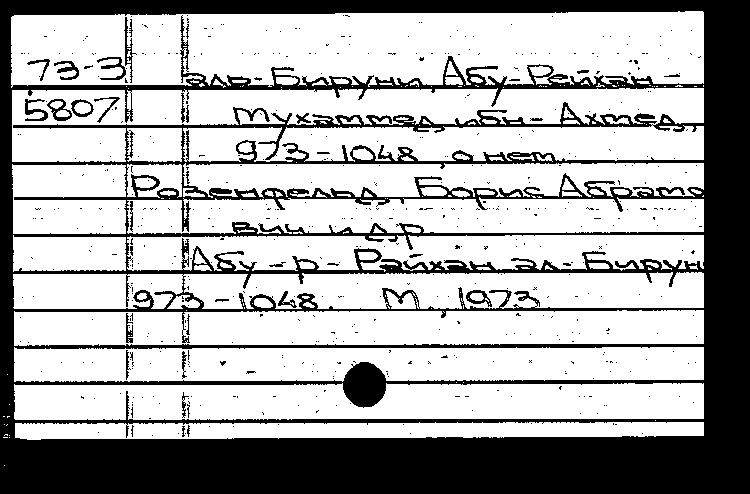 73-3 аль-Бируни, Абу-Рейхан-
5807 Мухаммед, ибн-Ахмед,
973-1048, о нем.
Розенфельд, Борис Абрамо
вич и др
Абу-р-Райхан ал-Бируни
973-1048. М., 1973